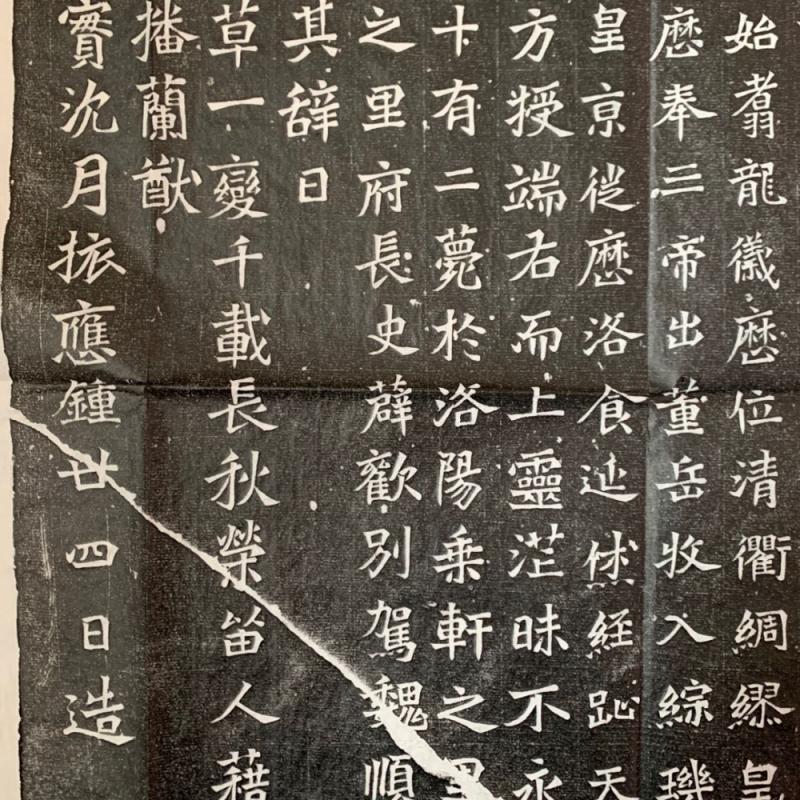 始翥龍徽歷位清衢綢繆皇
歷奉三帝出董岳牧入綜璣
皇京從歷洛食延伏經趾天
方授端右而上靈茫昧不永
十有二薨於洛陽乘軒之里
之里府長史薛歡別駕魏順
其辞曰
草一變千載長秋榮笛人藉
播蘭猷
實沈月挾應鍾廿四日造